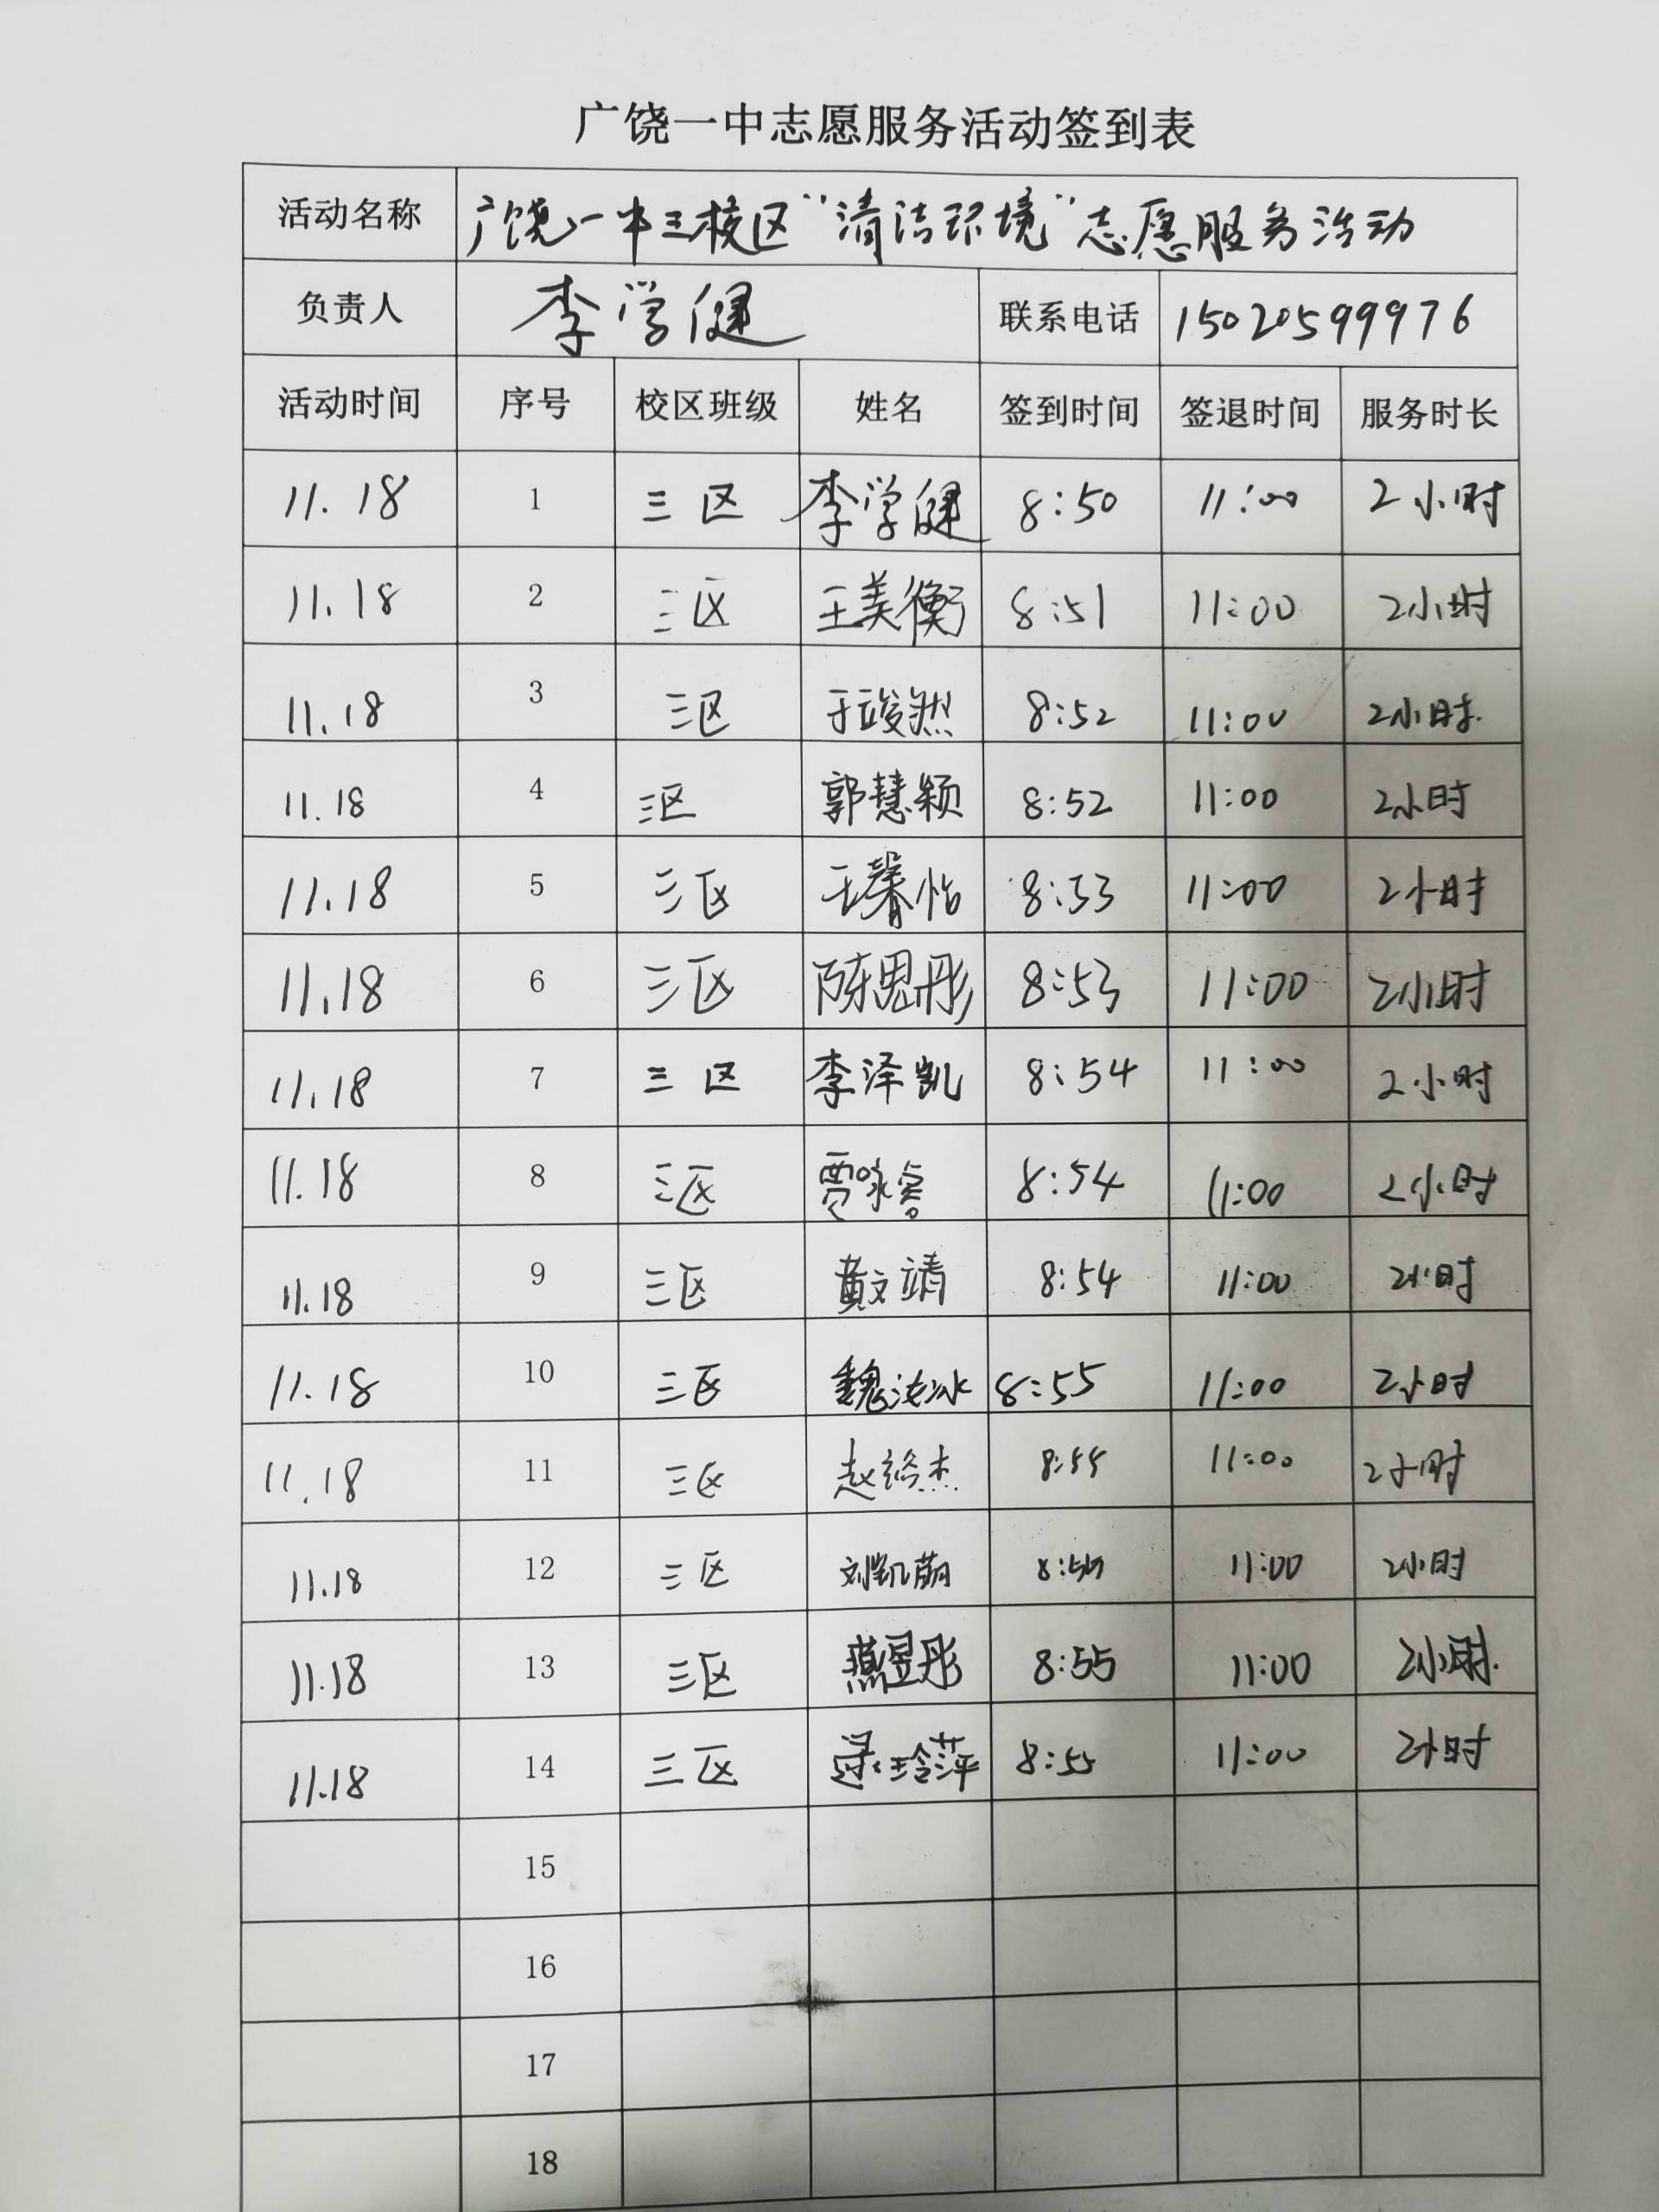 广饶一中志愿服务活动签到表
活动名称 广饶一中三校区“清洁环境”志愿服务活动
负责人 李学健 联系电话 15020599976
活动时间 序号 校区班级 姓名 签到时间 签退时间 服务时长
11.18 1 三区 李学健 8:50 11:00 2小时
11.18 2 三区 王美衡 8:51 11:00 2小时
11.18 3 三区 于竣然 8:52 11:00 2小时.
11.18 4 三区 郭慧颖 8:52 11:00 2小时
11.18 5 三区 王馨怡 8:53 11:00 2小时
11.18 6 三区 陈思彤 8:53 11:00 2小时
11.18 7 三区 李泽凯 8:54 11:00 2小时
11.18 8 三区 贾咏睿 8:54 11:00 2小时
11.18 9 三区 黄文靖 8:54 11:00 2小时
11.18 10 三区 魏汝冰 8:55 11:00 2小时
11.18 11 三区 8:55 11:00 2小时
11.18 12 三区 刘凯萌 8:55 11:00 2小时
11.18 13 三区 燕昱彤 8:55 11:00 2小时.
11.18 14 三区 逯玲萍 8:55 11:00 2小时
15
16
17
18